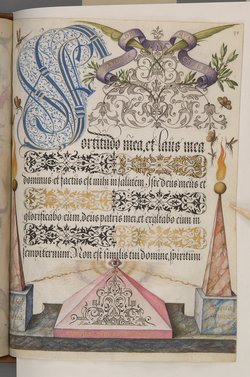 Fortitudo mea, et laus mea
dominus et factus est mihi in salutem. Iste Deus meus et
glorificabo eum, Deus patris mei, et exaltabo eum in
sempiternum. Non est similis tui domine, spiritum